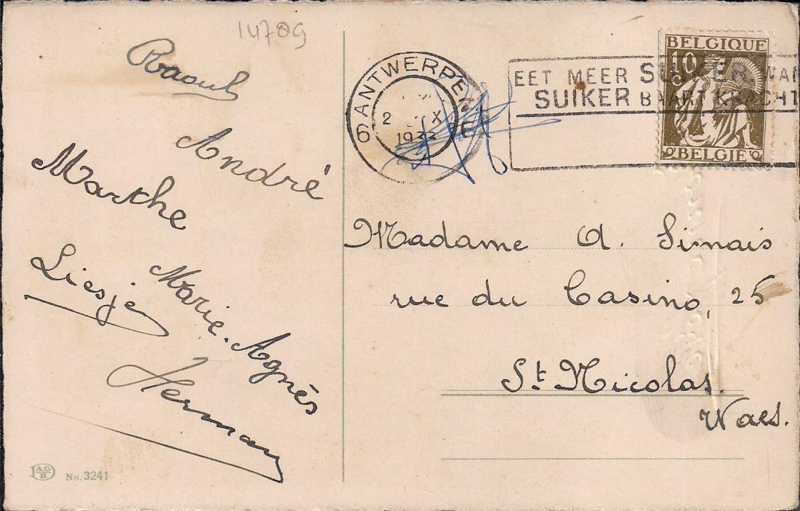 14789
Raoul
André
Marthe
Marie-Agnès
Liesje
Herman
No. 3241
6 ANTWERPEN
2 X
1933
EET MEER SUIKER, WAN
SUIKER BAART KRACHT
BELGIQUE
10
BELGIË
Madame A. Sinais
rue du Casino, 25
St. Nicolas
Waes.